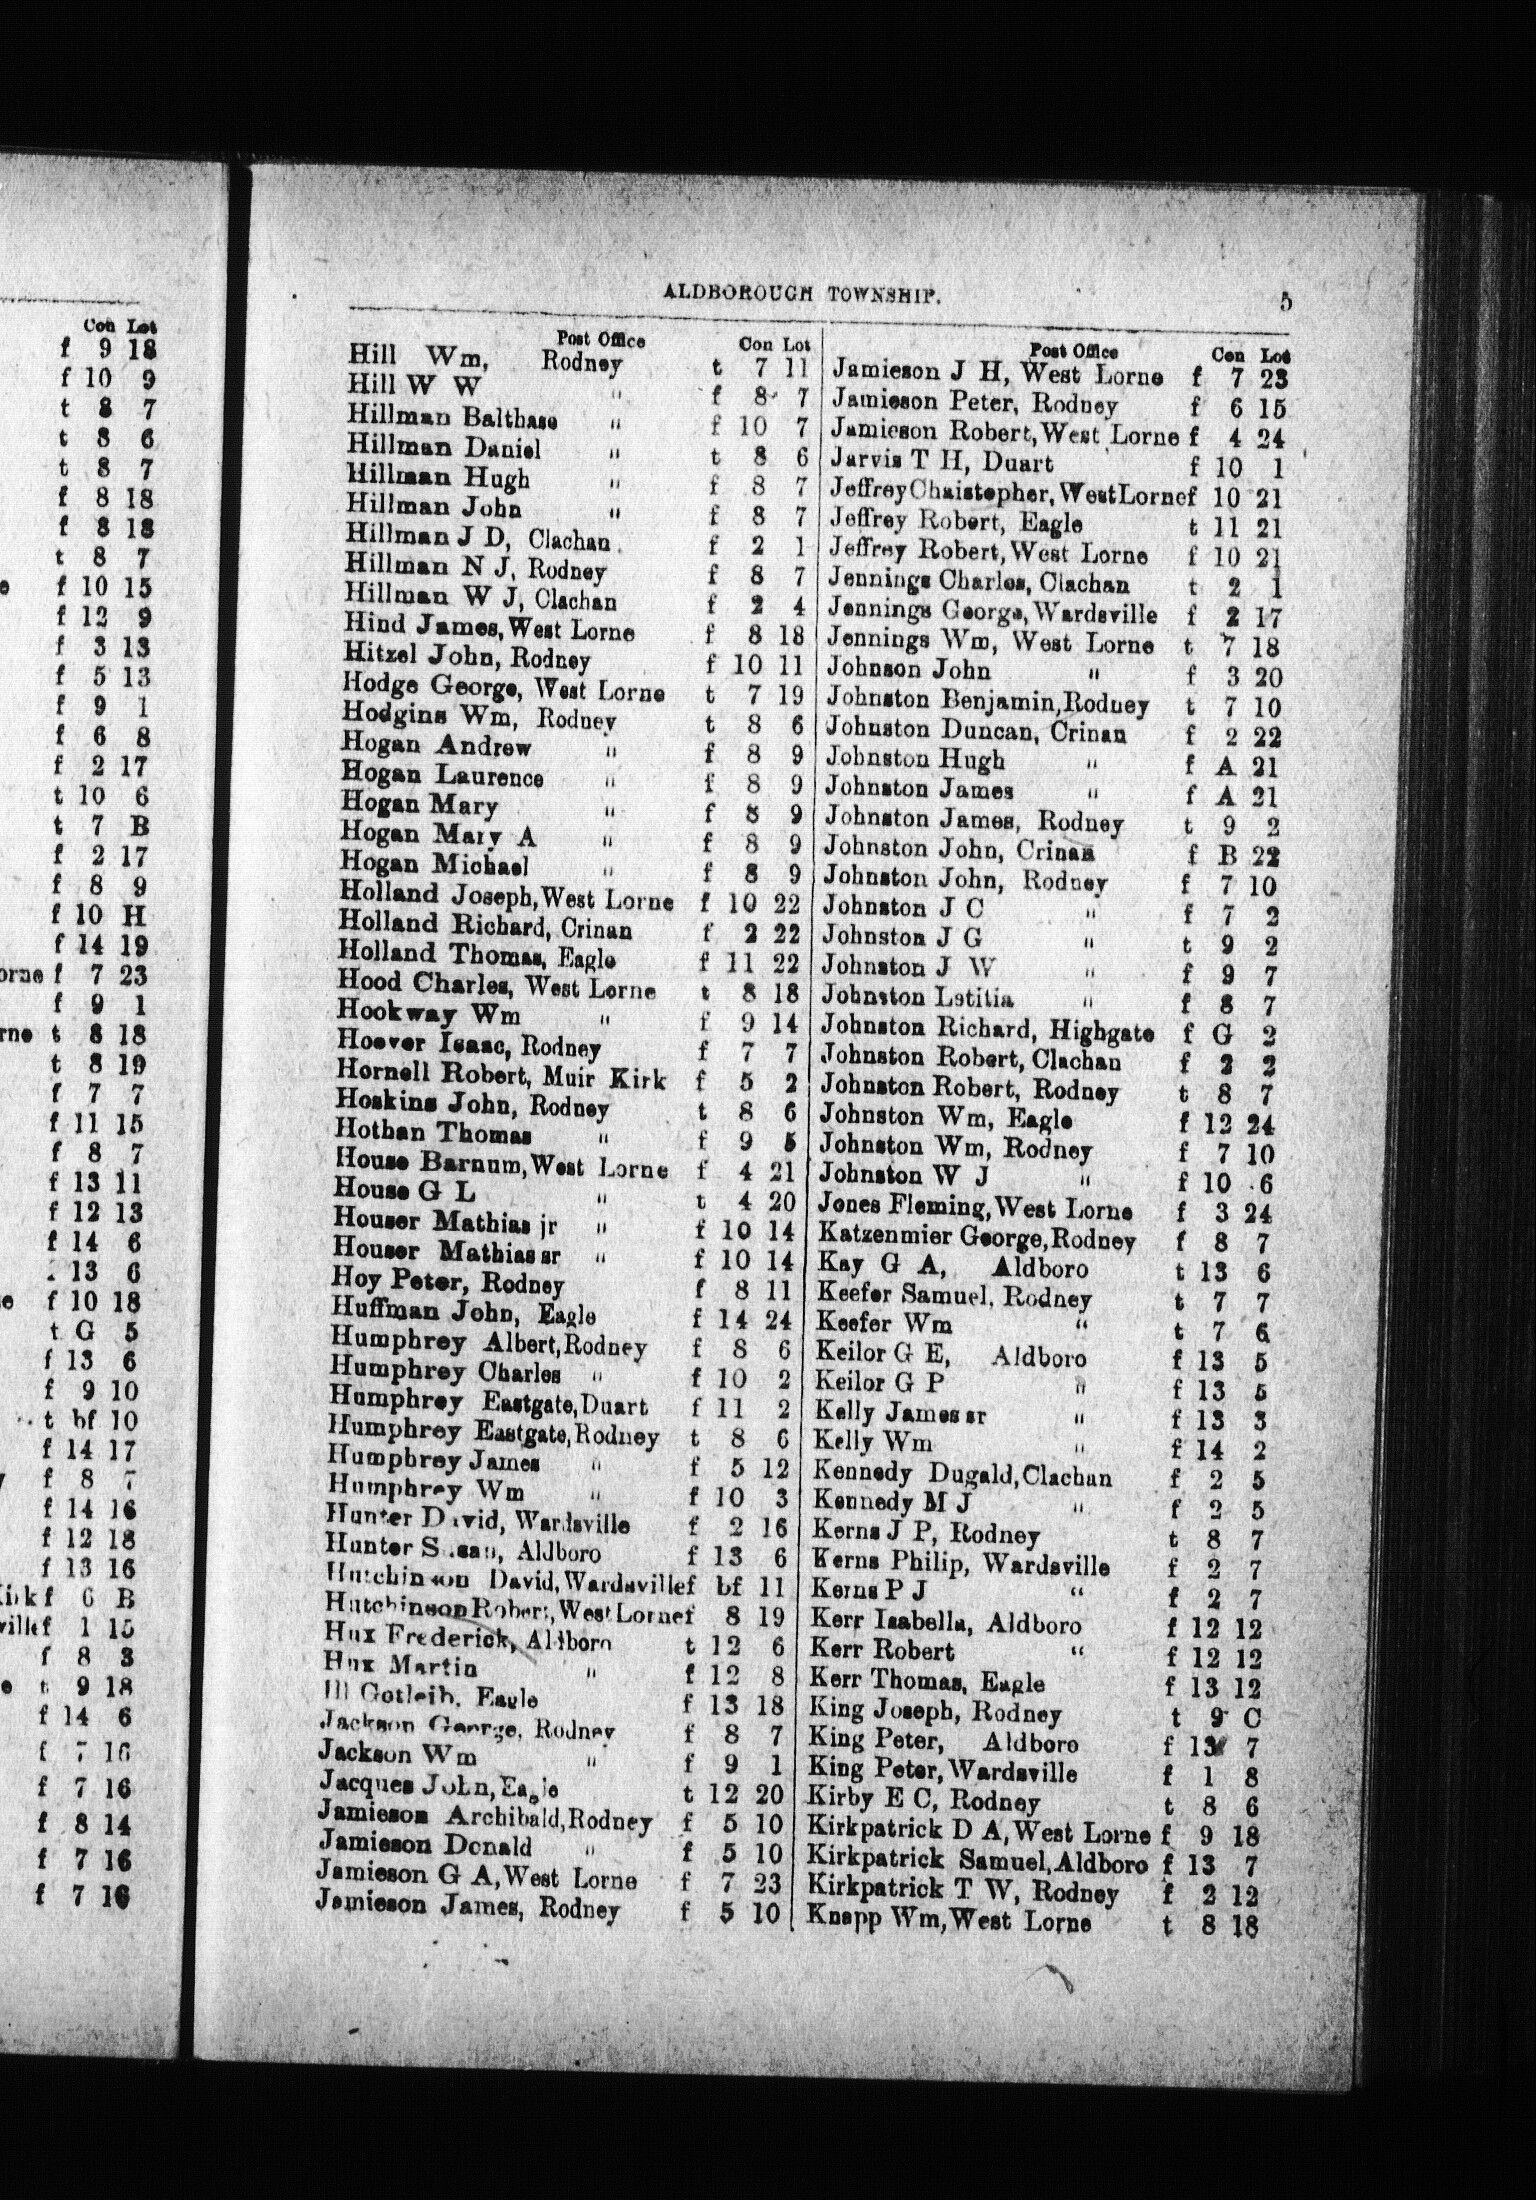 ALDBOROUGH TOWNSHIP. 5
Con Lot
f 9 18
f 10 9
t 8 7
t 8 6
t 8 7
f 8 18
f 8 18
t 8 7
f 10 15
f 12 9
f 3 13
f 5 13
f 9 1
f 6 8
f 2 17
t 10 6
t 7 B
f 2 17
f 8 9
f 10 H
f 14 19
orne f 7 23
f 9 1
rne t 8 18
t 8 19
f 7 7
f 11 15
f 8 7
f 13 11
f 12 13
f 14 6
13 6
f 10 18
t G 5
f 13 6
f 9 10
t bf 10
f 14 17
f 8 7
f 14 16
f 12 18
f 13 16
f 6 B
f 1 15
f 8 3
9 18
f 14 6
f 7 16
f 7 16
f 8 14
f 7 16
f 7 16
Post Office Con Lot
Hill Wm, Rodney t 7 11
Hill W W " f 8 7
Hillman Balthase " f 10 7
Hillman Daniel " t 8 6
Hillman Hugh " f 8 7
Hillman John " f 8 7
Hillman J D, Clachan f 2 1
Hillman N J, Rodney f 8 7
Hillman W J, Clachan f 2 4
Hind James, West Lorne f 8 18
Hitzel John, Rodney f 10 11
Hodge George, West Lorne t 7 19
Hodgins Wm, Rodney t 8 6
Hogan Andrew " f 8 9
Hogan Laurence " f 8 9
Hogan Mary " f 8 9
Hogan Mary A " f 8 9
Hogan Michael " f 8 9
Holland Joseph, West Lorne f 10 22
Holland Richard, Crinan f 2 22
Holland Thomas, Eagle f 11 22
Hood Charles, West Lorne t 8 18
Hookway Wm " f 9 14
Hoover Isaac, Rodney f 7 7
Hornell Robert, Muir Kirk f 5 2
Hoskins John, Rodney t 8 6
Hothan Thomas " f 9 5
House Barnum, West Lorne f 4 21
House G L " t 4 20
Houser Mathias jr " f 10 14
Houser Mathias sr " f 10 14
Hoy Peter, Rodney f 8 11
Huffman John, Eagle f 14 24
Humphrey Albert, Rodney f 8 6
Humphrey Charles " f 10 2
Humphrey Eastgate, Duart f 11 2
Humphrey Eastgate, Rodney t 8 6
Humphrey James " f 5 12
Humphrey Wm " f 10 3
Hunter David, Wardsville f 2 16
Hunter Susan, Aldboro f 13 6
Hutchinson David, Wardsville f bf 11
Hutchinson Robert, West Lorne f 8 19
Hux Frederick, Aldboro t 12 6
Hux Martin " f 12 8
Ill Gotleib, Eagle f 13 18
Jackson George, Rodney f 8 7
Jackson Wm " f 9 1
Jacques John, Eagle t 12 20
Jamieson Archibald, Rodney f 5 10
Jamieson Donald " f 5 10
Jamieson G A, West Lorne f 7 23
Jamieson James, Rodney f 5 10
Post Office Con Lot
Jamieson J H, West Lorne f 7 23
Jamieson Peter, Rodney f 6 15
Jamieson Robert, West Lorne f 4 24
Jarvis T H, Duart f 10 1
Jeffrey Chaistopher, West Lorne f 10 21
Jeffrey Robert, Eagle t 11 21
Jeffrey Robert, West Lorne f 10 21
Jennings Charles, Clachan t 2 1
Jennings George, Wardsville f 2 17
Jennings Wm, West Lorne t 7 18
Johnson John " f 3 20
Johnston Benjamin, Rodney t 7 10
Johnston Duncan, Crinan f 2 22
Johnston Hugh " f A 21
Johnston James " f A 21
Johnston James, Rodney t 9 2
Johnston John, Crinan f B 22
Johnston John, Rodney f 7 10
Johnston J C " f 7 2
Johnston J G " t 9 2
Johnston J W " f 9 7
Johnston Letitia " f 8 7
Johnston Richard, Highgate f G 2
Johnston Robert, Clachan f 2 2
Johnston Robert, Rodney t 8 7
Johnston Wm, Eagle f 12 24
Johnston Wm, Rodney f 7 10
Johnston W J " f 10 6
Jones Fleming, West Lorne f 3 24
Katzenmier George, Rodney f 8 7
Kay G A, Aldboro t 13 6
Keefer Samuel, Rodney t 7 7
Keefer Wm " t 7 6
Keilor G E, Aldboro f 13 5
Keilor G P " f 13 5
Kelly James sr " f 13 3
Kelly Wm " f 14 2
Kennedy Dugald, Clachan f 2 5
Kennedy M J " f 2 5
Kerns J P, Rodney t 8 7
Kerns Philip, Wardsville f 2 7
Kerns P J " f 2 7
Kerr Isabella, Aldboro f 12 12
Kerr Robert " f 12 12
Kerr Thomas, Eagle f 13 12
King Joseph, Rodney t 9 C
King Peter, Aldboro f 13 7
King Peter, Wardsville f 1 8
Kirby E C, Rodney t 8 6
Kirkpatrick D A, West Lorne f 9 18
Kirkpatrick Samuel, Aldboro f 13 7
Kirkpatrick T W, Rodney f 2 12
Knapp Wm, West Lorne t 8 18